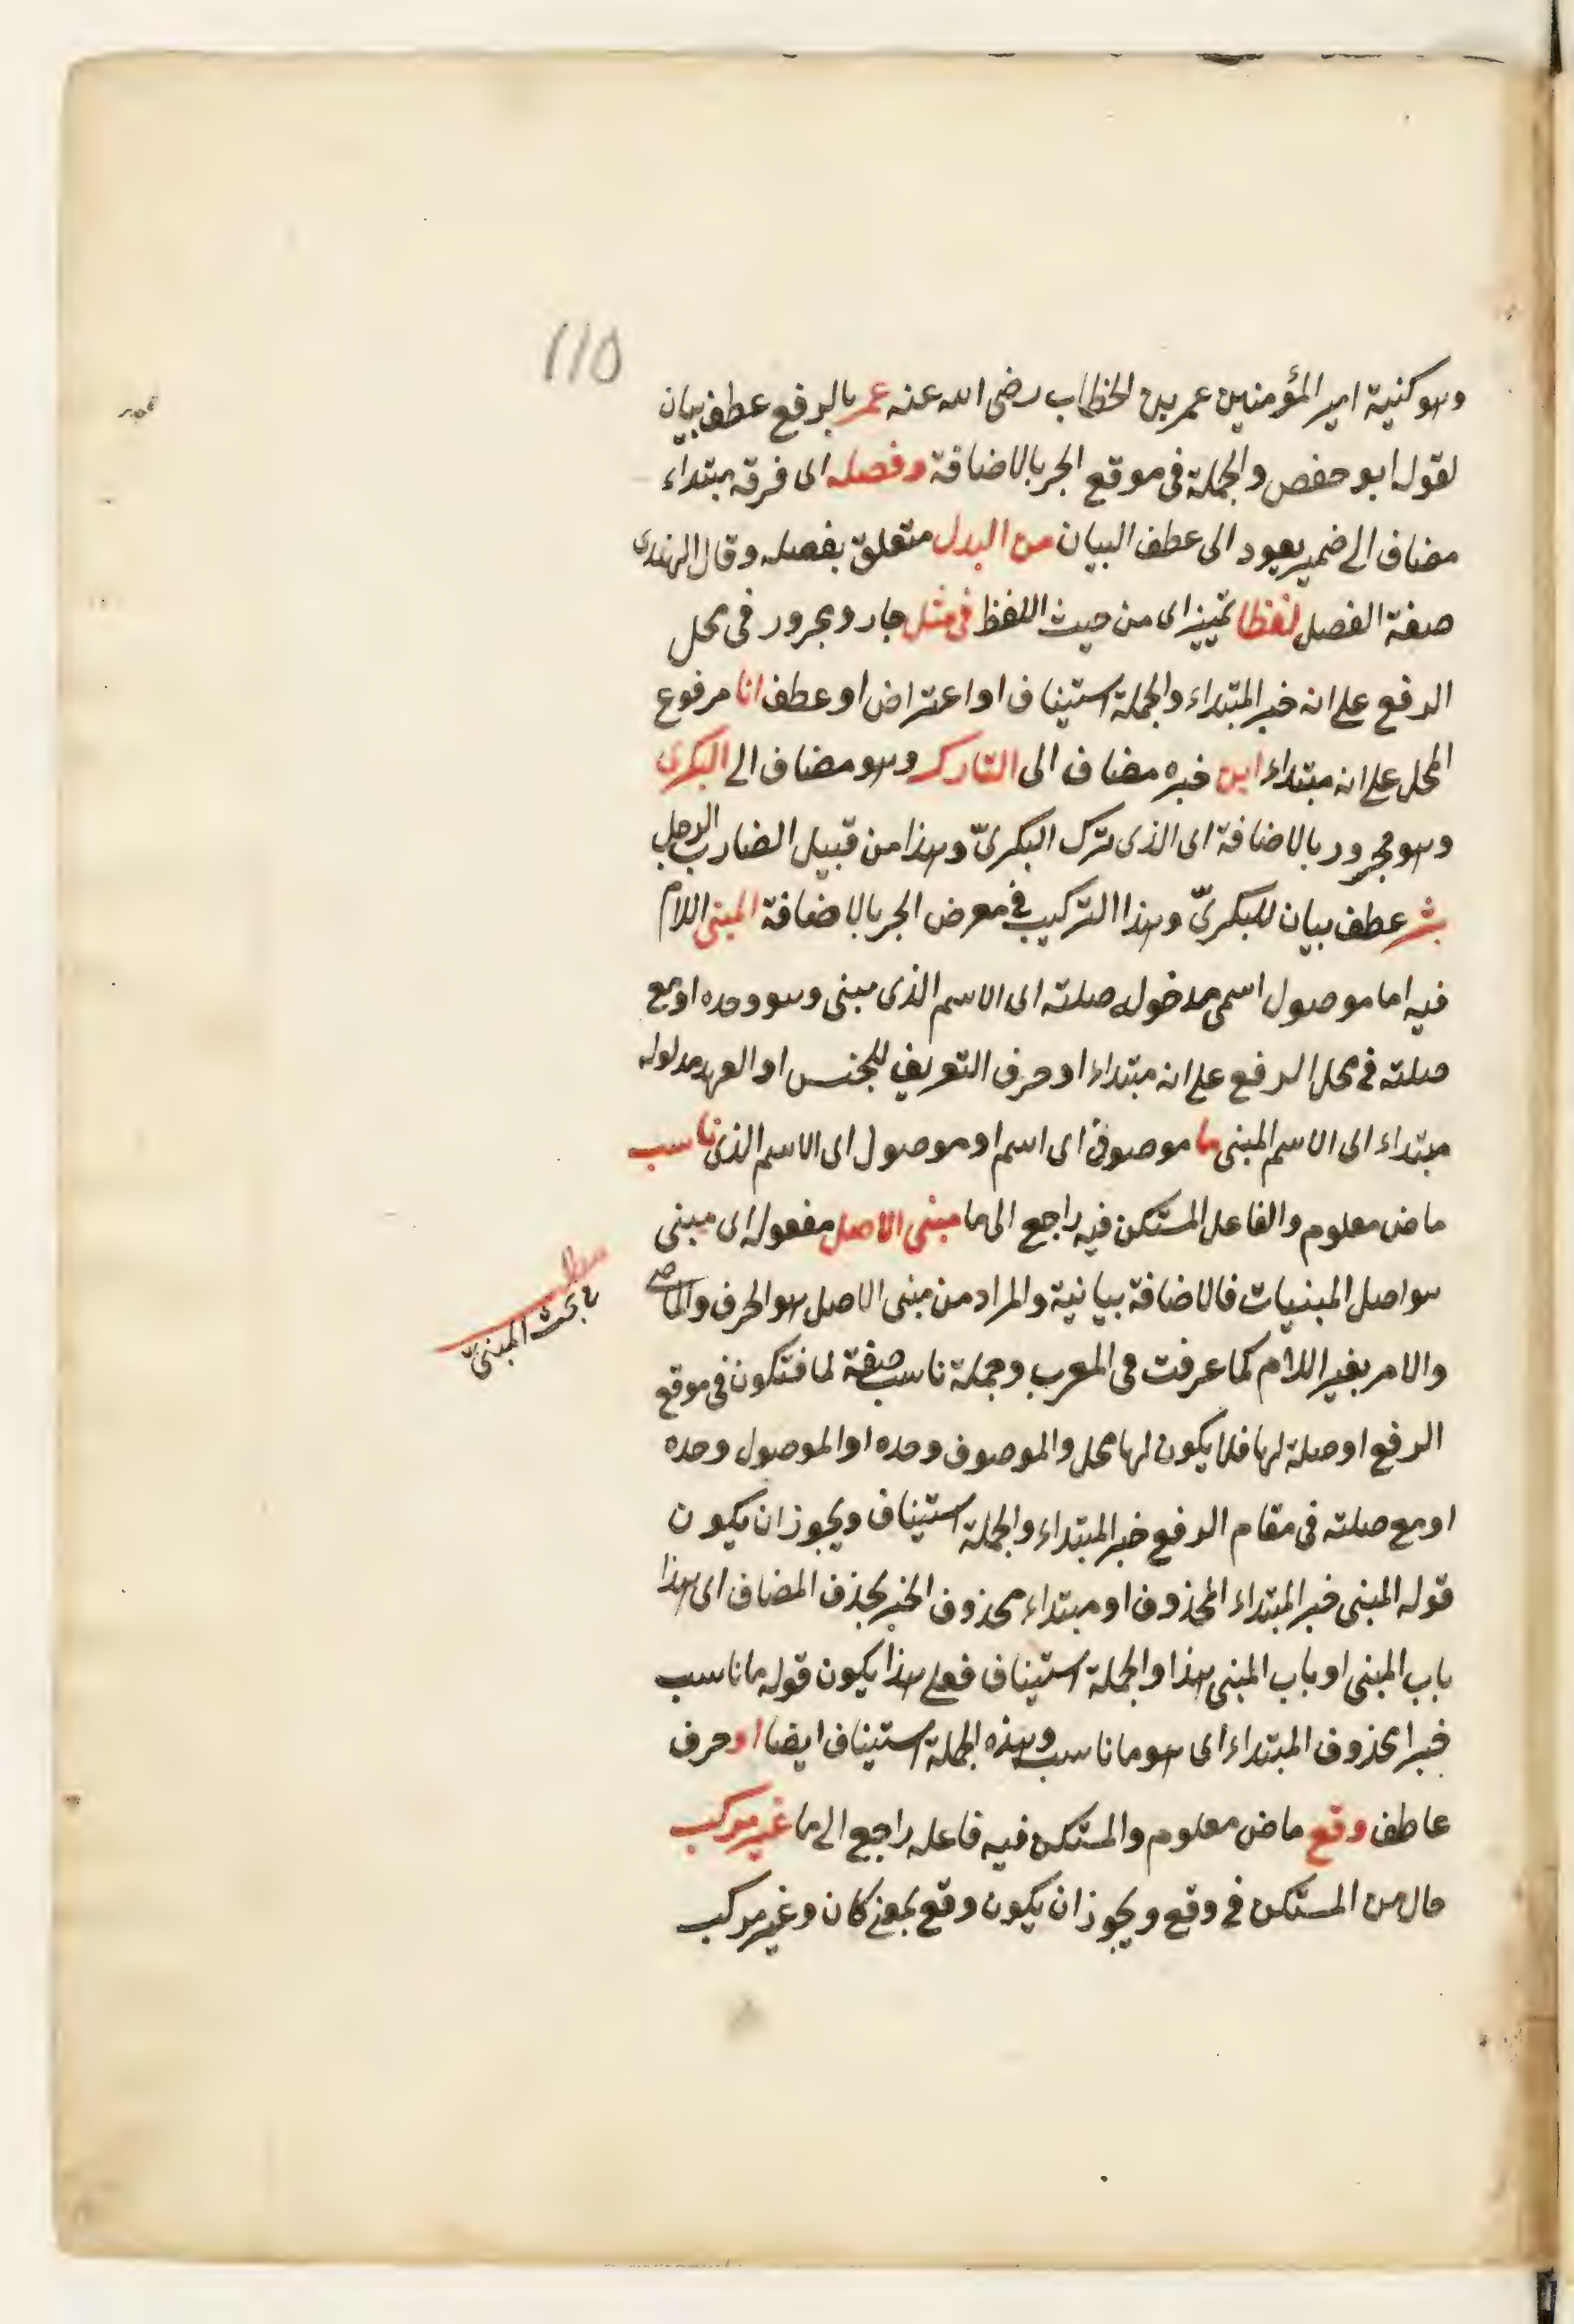 115
وهو كنية امير المؤمنين عمر بن الخطاب رضى الله عنه عمر بالرفع عطف بيان
لقوله ابو حفص والجملة فى موقع الجر بالاضافة وفصله اى فرقه مبتداء
مضاف الى ضمير يعود الى عطف البيان من البدل متعلق بفصله وقال الهندى
صفة الفصل لفظا تمييز اى من حيث اللفظ فى مثل جار ومجرور فى محل
الرفع على انه خبر المبتداء والجملة استيناف او اعتراض او عطف انا مرفوع
المحل على انه مبتداء ابن خبره مضاف الى التارك وهو مضاف الى البكرى
وهو مجرور بالاضافة اى الذى ترك البكرىّ وهذا من قبيل الضارب الرجل
بشر عطف بيان للبكرىّ وهذا التركيب فى معرض الجر بالاضافة المبنى اللام
فيه اما موصول اسمى مدخوله صلته اى الاسم الذى مبنى وهو وحده او مع
صلته فى محل الرفع على انه مبتداء او حرف التعريف للجنس او العهد مدلوله
مبتداء اى الاسم المبنى ما موصوفة اى اسم او موصول اى الاسم الذى ناسب
ماض معلوم والفاعل المستكن فيه راجع الى ما مبنى الاصل مفعوله اى مبنى
هو اصل المبنيات فالاضافة بيانية والمراد من مبنى الاصل هو الحرف والماضى
مطلب
فى بحث المبنىّ
والامر بغير اللام كما عرفت فى المعرب وجملة ناسب صفة لما فتكون فى موقع
الرفع او صلة لها فلا يكون لها محل والموصوف وحده او الموصول وحده
او مع صلته فى مقام الرفع خبر المبتداء والجملة استيناف ويجوز ان يكون
قوله المبنى خبر المبتداء المحذوف او مبتداء محذوف الخبر بحذف المضاف اى هذا
باب المبنى او باب المبنى هذا والجملة استيناف فعلى هذا يكون قوله ما ناسب
خبرا محذوف المبتداء اى هو ما ناسب وهذه الجملة استيناف ايضا او حرف
عاطف وقع ماض معلوم والمستكن فيه فاعله راجع الى ما غير مركب
حال من المستكن فى وقع ويجوز ان يكون وقع بمعنى كان وغير مركب